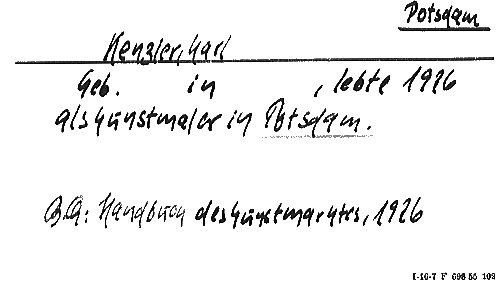 Potsdam
Kenzler, Karl
Geb. in , lebte 1926
als Kunstmaler in Potsdam.
B.Q: Handbuch des Kunstmarktes, 1926
I-16-7 F 698 55 109